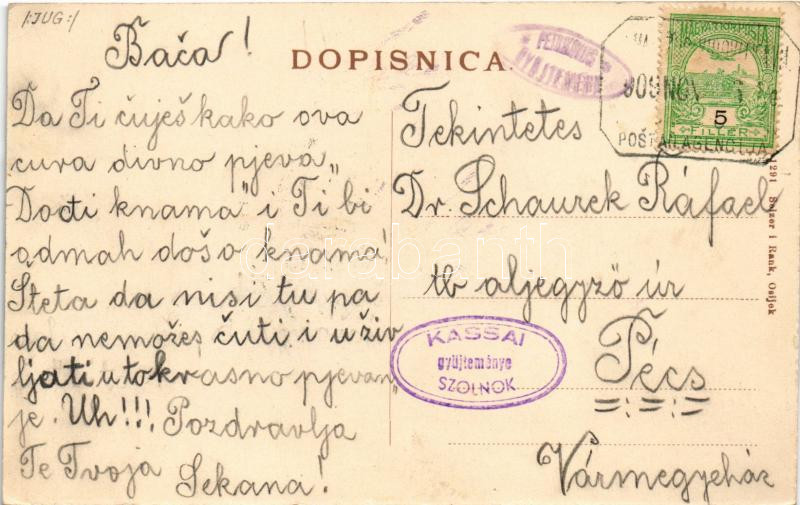 /:JUG:/
DOPISNICA.
Bača!
Da Ti čuješ kako ova
cura divno pjeva „
Dođi k nama" i Ti bi
odmah došo k nama!
Šteta da nisi tu pa
da nemožeš čuti i uživ
ljati u tok krasno pjevan"
je. Uh!!! Pozdravlja
Te Tvoja
Sekana!
GYŰJTEMÉNY
909 NOV
MAGYAR KIR. POSTA
5
FILLER
Tekintetes
Dr. Schaurek Ráfael
tb aljegyző úr
Pécs
Vármegyeház
KASSAI
gyüjteménye
SZOLNOK
1291 Selzer i Rank, Osijek
darabanth